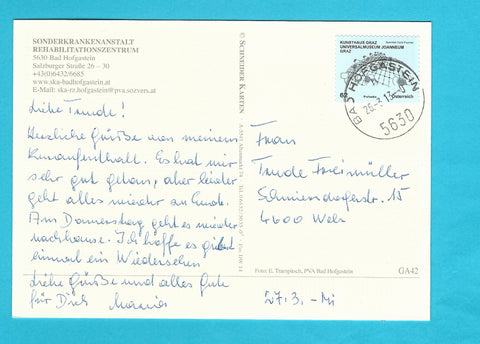 SONDERKRANKENANSTALT
REHABILITATIONSZENTRUM
5630 Bad Hofgastein
Salzburger Straße 26 – 30
+43(0)6432/6685
www.ska-badhofgastein.at
E-Mail: ska-rz.hofgastein@pva.sozvers.at
Liebe Trude!
Herzliche Grüße von meinem
Kuraufenthalt. Es hat mir
sehr gut getan, aber leider
geht alles wieder zu Ende.
Am Donnerstag geht es wieder
nachhause. Ich hoffe es gibt
einmal ein Wiedersehen
Liebe Grüße und alles Gute
für Dich Maria
© SCHNEIDER KARTEN
KUNSTHAUS GRAZ
UNIVERSALMUSEUM JOANNEUM
GRAZ
62
Österreich
BAD HOFGASTEIN
5630
Frau
Trude Freimüller
15
4600 Wels
Foto: E. Trampitsch, PVA Bad Hofgastein
GA42
27.3. - Mi